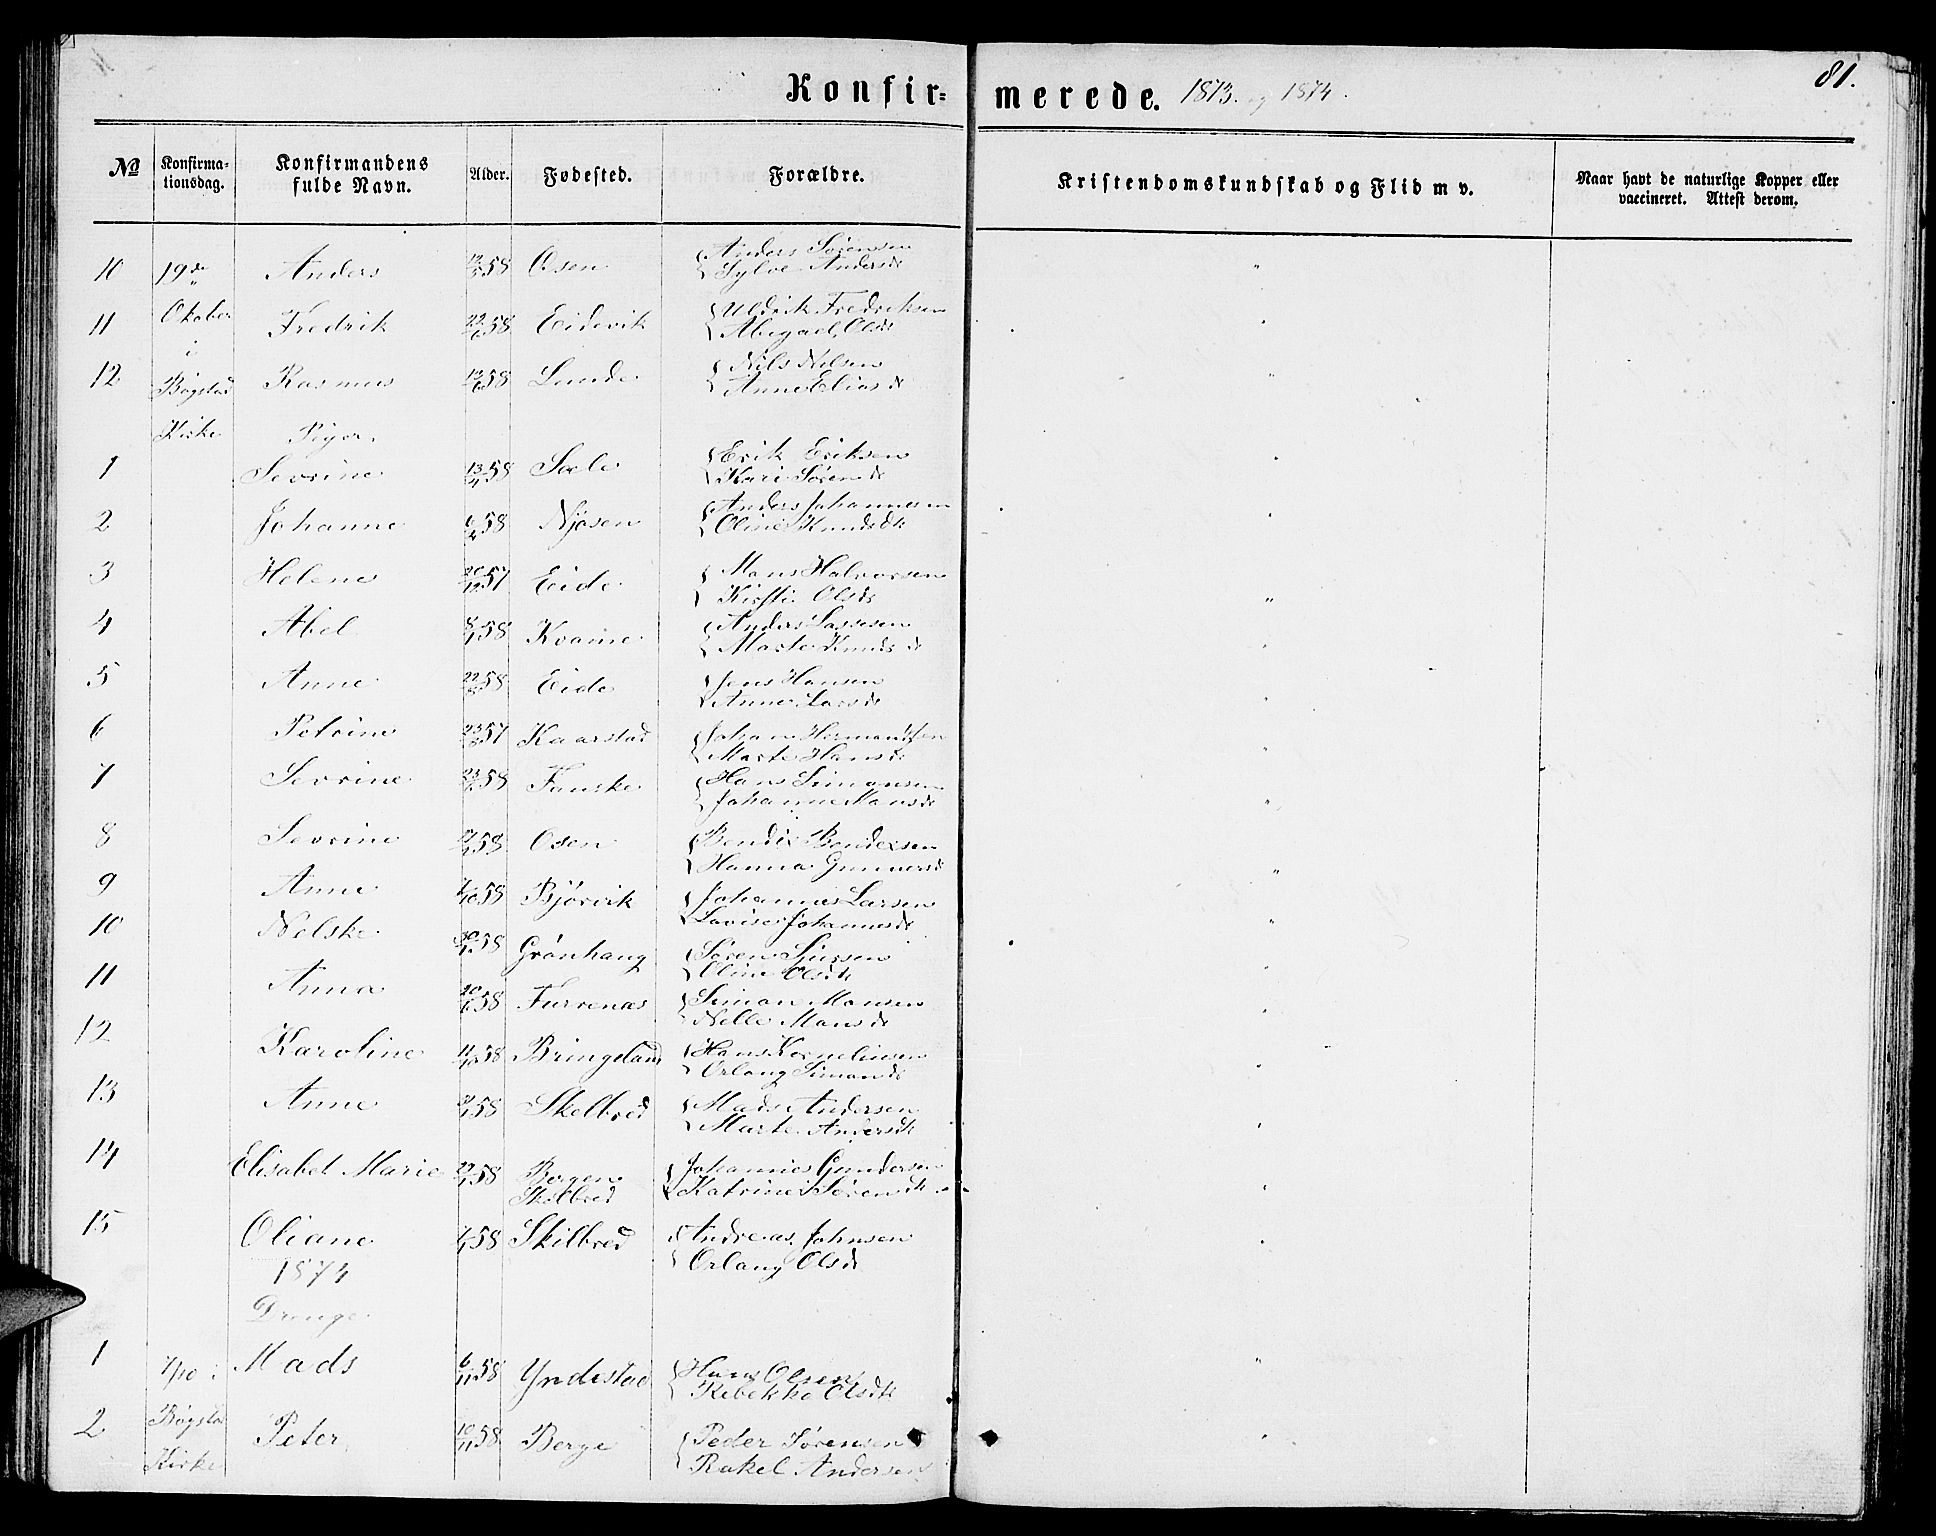 Konfirmerede. 1873. og 1874.
81.
No
Konfirmationsdag.
Konfirmandens fulde Navn.
Alder.
Fødested.
Forældre.
Kristendomskundskab og Flid m v.
Naar havt de naturlige Kopper eller vaccineret. Attest derom.
10 19de Anders 58 Osen Anders Sørensen
Sylve Andersdt
Oktober
11 Fredrik 58 Eidevik Uldrik Fredriksen
Abigael Olsdt
i
12 Bygstad Rasmus 58 Lunde Nils Nilsen
Anne Eliasdt
Kirke Piger.
1 Sevrine 13/4 58 Sæle Erik Eriksen
Kari Sørensdt
2 Johanne 58 Njøsen Anders Johannesen
Oline Knudsdt
3 Helene 57 Eide Mons Halvorsen
Kirsti Olsdt
4 Abel 58 Kvame Anders Lassesen
Marte Knudsdt
5 Anne 58 Eide Jens Hansen
Anne Larsdt
6 Petrine 57 Kaarstad Johan Hermandsen
Marte Hansdt
7 Sevrine 58 Funske Hans Simonsen
Johanne Hansdt
8 Sevrine 58 Osen Bendix Bendixsen
Hanna Gunnersdt
9 Anne 58 Bjørvik Johannes Larsen
Lovise Johannesdt
10 Nelske 58 Grønhaug Søren Sjursen
Oline Olsdt
11 Anna 58 Furrenæs Simon Monsen
Nelle Monsdt
12 Karoline 58 Bringeland Hans Kornelinsen
Orlaug Simonsdt
13 Anne 58 Skelbred Mads Andersen
Marte Andersdt
14 Elisabet Marie 58 Bergen Johannes Gundersen
Skelbred Katrine Sørensdt
15 Oliane 58 Skilbred Andreas Johnsen
Orlaug Olsdt
1874
Drenge
1 7/10 i Mads 6/11 58 Yndestad Hans Olsen
Rebekka Olsdt
Bygstad
2 Peter 10/11 58 Berge Peder Sørensen
Kirke Rakel Andersen